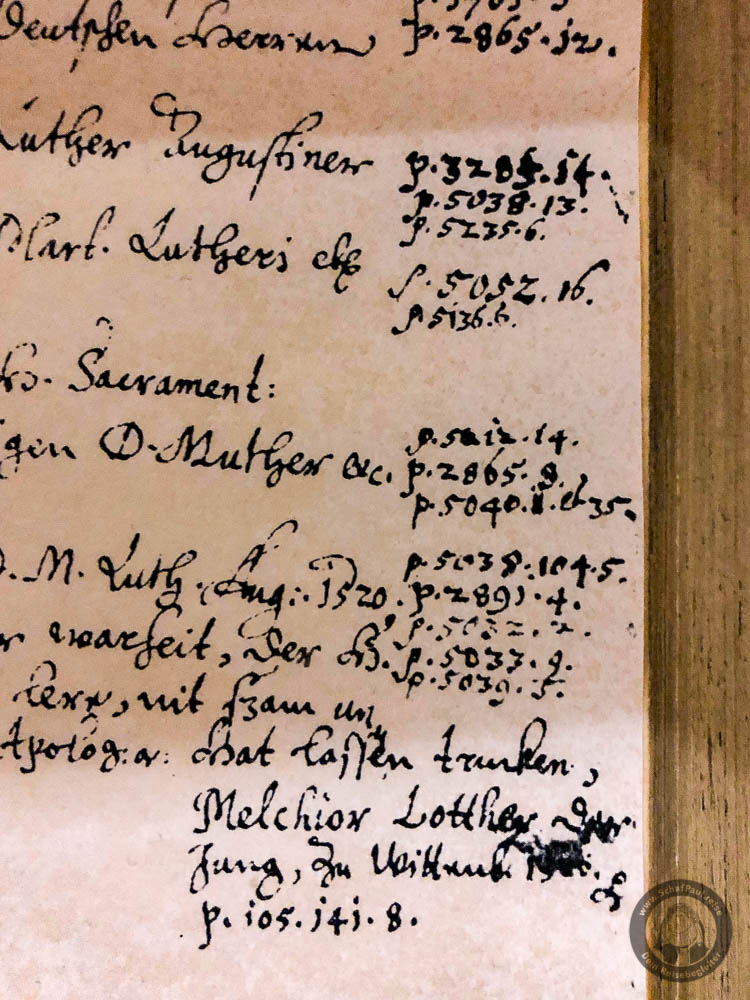 Deutschen Herren p. 2865. 12.
Luther Augustiner p. 3285. 14.
p. 5038. 13.
p. 5235. 6.
Mart. Lutheri etc
p. 5052. 16.
p. 5136. 6.
Sacrament:
p. 5012. 14.
gen D. Muther &c. p. 2865. 8.
p. 5040. 11. et 35.
D. M. Luth. 1520. p. 5038. 104. 5.
p. 2891. 4.
p. 5032. 2.
warheit, der H. p. 5037. 9.
p. 5039. 5.
lere, nit
Apolog: Hat lassen trucken,
Melchior Lotther der
Jung, zu Wittenb.
p. 105. 141. 8.
www.SchafPaul.reise
Dein Reisebegleiter